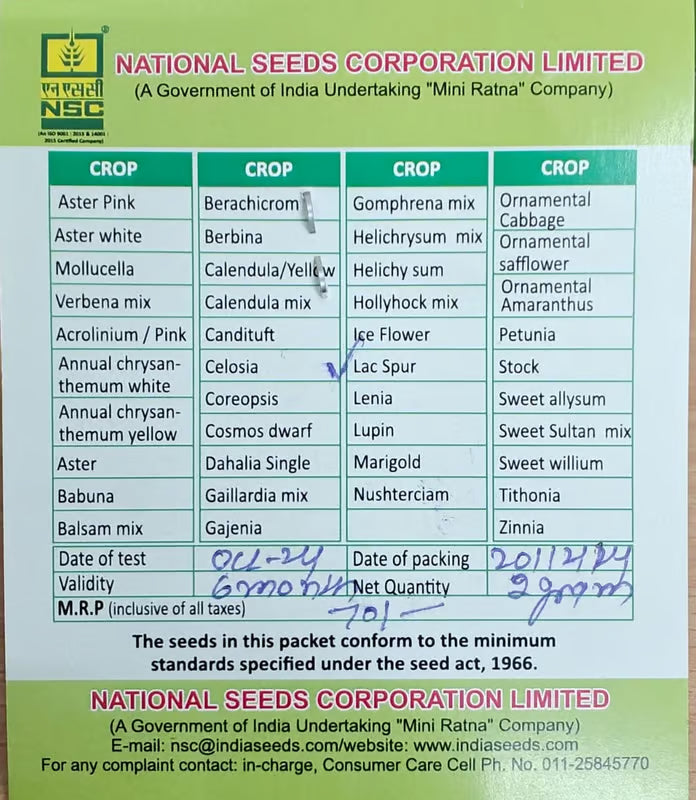 NATIONAL SEEDS CORPORATION LIMITED
(A Government of India Undertaking "Mini Ratna" Company)
एन एस सी
NSC
(An ISO 9001 : 2015 & 14001 :
2015 Certified Company)
CROP CROP CROP CROP
Aster Pink Berachicrom Gomphrena mix Ornamental Cabbage
Aster white Berbina Helichrysum mix Ornamental safflower
Mollucella Calendula/Yellow Helichy sum Ornamental Amaranthus
Verbena mix Calendula mix Hollyhock mix
Acrolinium / Pink Candituft Ice Flower Petunia
Annual chrysan-
themum white Celosia ✓ Lac Spur Stock
Annual chrysan-
themum yellow Coreopsis Lenia Sweet allysum
Cosmos dwarf Lupin Sweet Sultan mix
Aster Dahalia Single Marigold Sweet willium
Babuna Gaillardia mix Nushterciam Tithonia
Balsam mix Gajenia Zinnia
Date of test Oct-24 Date of packing 20/12/24
Validity 6 months Net Quantity 2 gram
M.R.P (inclusive of all taxes) 70/-
The seeds in this packet conform to the minimum
standards specified under the seed act, 1966.
NATIONAL SEEDS CORPORATION LIMITED
(A Government of India Undertaking "Mini Ratna" Company)
E-mail: nsc@indiaseeds.com/website: www.indiaseeds.com
For any complaint contact: in-charge, Consumer Care Cell Ph. No. 011-25845770